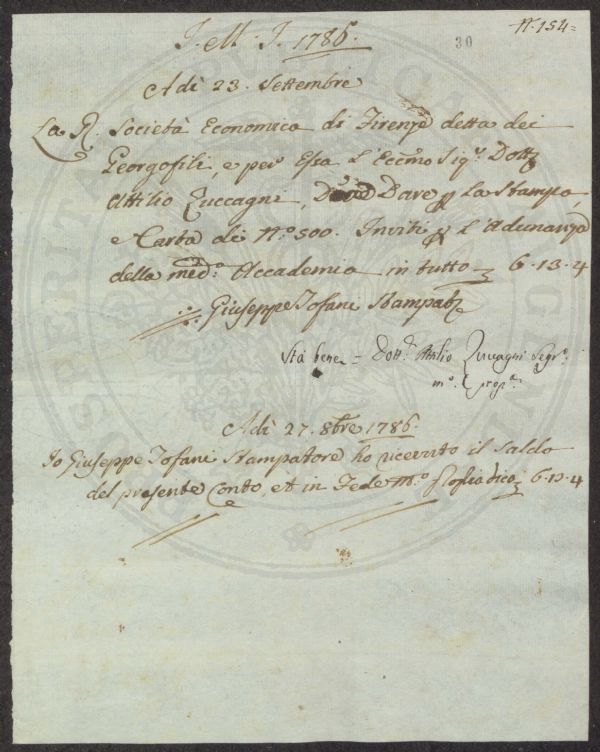 N.° 154=
30
J. M. J. 1786.
Adì 23. Settembre
La R. Società Economica di Firenze detta dei
Georgofili, e per Essa l'Eccmo Sigr. Dottr
Attilio Zuccagni, Dare p La Stampa,
e Carta di N.° 500. Inviti p L'Adunanza
della med.a Accademia in tutto £ 6.13.4
Giuseppe Tofani Stampatre
Sta bene = Dott. Attilio Zuccagni Segr.o
m.o prop.a
Adì 27. 8bre 1786.
Io Giuseppe Tofani Stampatore ho ricevuto il Saldo
del presente Conto, et in Fede M.o 6.13.4
PROSPERITATI PUBLICAE AUGENDAE